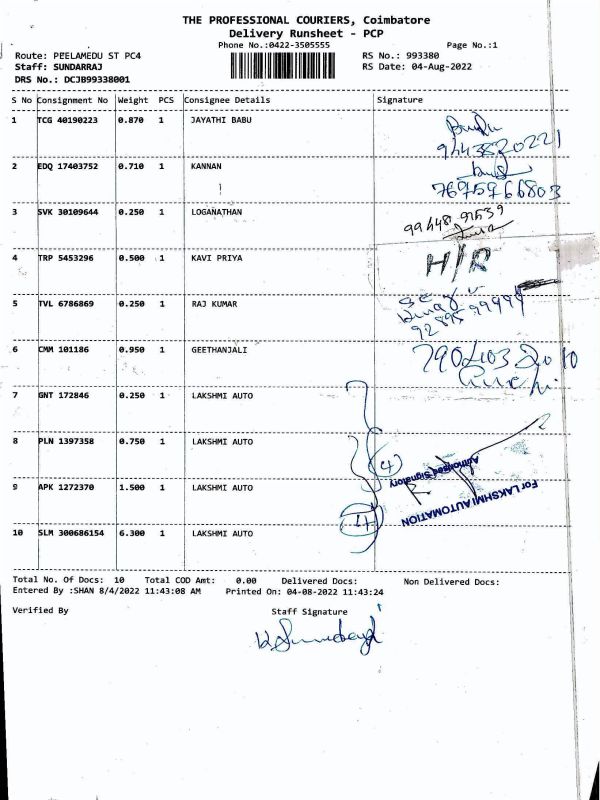 THE PROFESSIONAL COURIERS, Coimbatore
Delivery Runsheet - PCP
Phone No.:0422-3505555 Page No.:1
Route: PEELAMEDU ST PC4 RS No.: 993380
Staff: SUNDARRAJ RS Date: 04-Aug-2022
DRS No.: DCJB99338001
S No Consignment No Weight PCS Consignee Details Signature
1 TCG 40190223 0.870 1 JAYATHI BABU
9443820221
2 EDQ 17403752 0.710 1 KANNAN
7695966803
3 SVK 30109644 0.250 1 LOGANATHAN
4 TRP 5453296 0.500 1 KAVI PRIYA H/R
5 TVL 6786869 0.250 1 RAJ KUMAR
6 CMM 101186 0.950 1 GEETHANJALI
7 GNT 172846 0.250 1 LAKSHMI AUTO
8 PLN 1397358 0.750 1 LAKSHMI AUTO
4
Authorised Signatory
9 APK 1272370 1.500 1 LAKSHMI AUTO
For LAKSHMI AUTOMATION
10 SLM 300686154 6.300 1 LAKSHMI AUTO
Total No. Of Docs: 10 Total COD Amt: 0.00 Delivered Docs: Non Delivered Docs:
Entered By :SHAN 8/4/2022 11:43:08 AM Printed On: 04-08-2022 11:43:24
Verified By Staff Signature